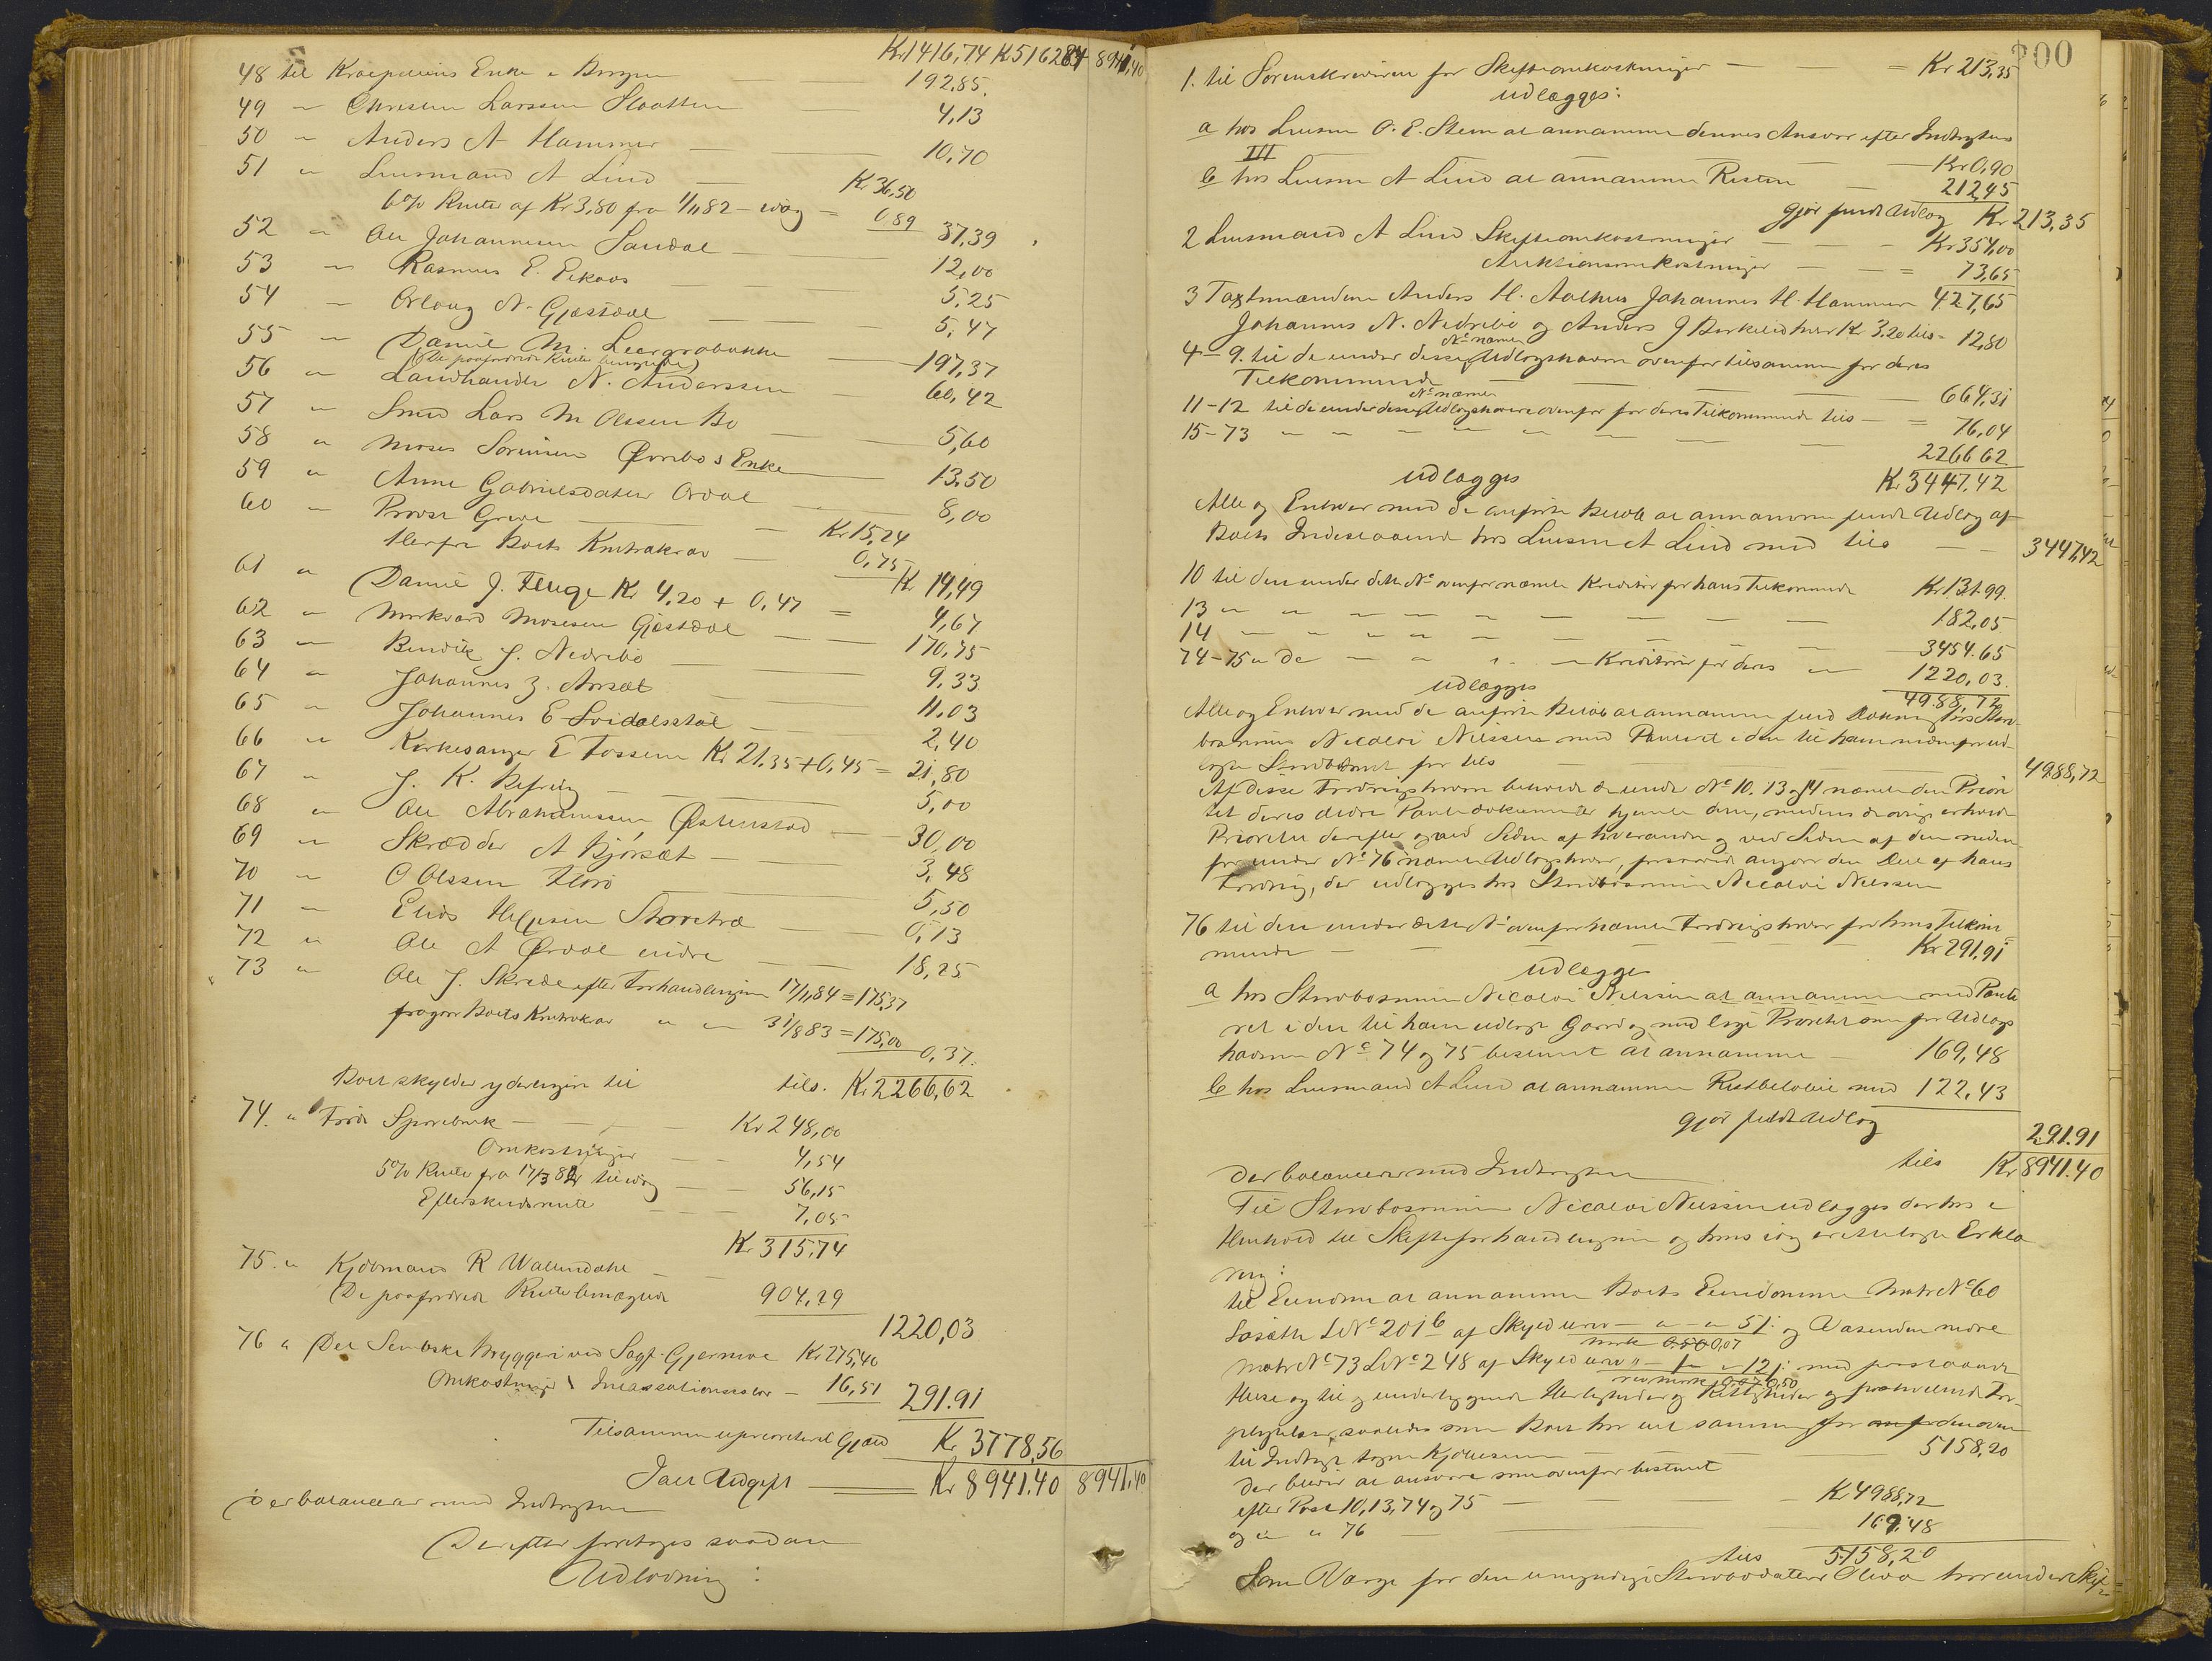 Kr 1416,74 K 5162 84 8941,40
48 til Kraepeliens Enke i Bergen 192,85.
49 " Christen Larssen Slaatten 4,13
50 " Anders A Hammer 10,70
51 " Lensmand A Lind Kr 36,50
6% Rente af Kr 3,80 fra 1/11 82 - idag = 0,89 37,39
52 " Ole Johannesen Sandal 12,00
53 " Rasmus E. Eikaas 5,25
54 " Orlaug N. Gjæstdal 5,47
55 " Daniel M. Leergrobakke 197,37
(De paafordrede Renter benegtede)
56 " Landhandler N. Anderssen 60,42
57 " Smed Lars M Olssen Bo 5,60
58 " Moses Sørensen Øvrebøs Enke 13,50
59 " Anne Gabrielsdatter Ordal 8,00
60 " Provst Greve Kr 15,24
Herfra Boets Kontrakrav 0,75 Kr 14,49
61 " Daniel J. Fluge Kr 4,20 + 0,47 = 4,67
62 " Markvard Mosesen Gjæstdal 170,75
63 " Bendik J. Nedrebø 9,33
64 " Johannes Z. Aasæt 11,03
65 " Johannes E Svidalsstøl 2,40
66 " Kirkesanger E Fossem Kr 21,35 + 0,45 = 21,80
67 " J. K. Refvig 5,00
68 " Ole Abrahamssen Østenstad 30,00
69 " Skrædder A Bjørsæt 3,48
70 " O Olssen Florø 5,50
71 " Elias Helgesen Storetræ 0,13
72 " Ole A Ørdal endre 18,25
73 " Ole J. Skrede efter Forhandlingen 17/11 84 = 175,37
fragaar Boets Kontrakrav " " 31/8 83 = 175,00 0,37.
tils. Kr 2266,62
Boet skylder yderligere til
74. " Førde Sparebank Kr 248,00
Omkostninger 4,54
5% Rente fra 17/3 82 til idag 56,15
Efterskudsrente 7,05
Kr 315,74
75. " Kjøbmand R Wallendahl
De paafordrede Renter benægtede 904,29
1220,03
76 " Det Sembske Bryggeri ved Sagf. Gjerneve Kr 275,40
Omkostninger Incassationssalær - 16,51 291.91
Tilsammen uprioriteret Gjæld Kr 3778,56
Ialt Udgift Kr 8941.40 8941,40
der balancerer med Indtægten
Derefter foretages saadan
Udlodning:
200
1. til Sorenskriveren for Skifteomkostninger = Kr 213,35
udlægges:
a hos Lensm O. E. Stein at annamme dennes Ansvar efter Indtægten
III Kr 0,90
b hos Lensm A Lind at annamme Resten 212,45
gjør fuldt Udlæg Kr 213,35
2 Lensmand A Lind Skifteomkostninger Kr 354,00
Auktionsomkostninger = 73,65
427,65
3 Taxtmændene Anders H. Aalhus Johannes H. Hammer
Johannes N. Nedrebø og Anders J Berkelid hver Kr 3,20 tils - 12,80
4 - 9. til de under disse No nævnte Udlægshavere ovenfor tilsammen for deres
Tilkommende 664,31
11-12 til de under disse No nævnte Udlægshavere ovenfor for deres Tilkommende tils = 76,04
15-73 " " " " " " 2266 62
udlægges Kr 3447,42
Alle og Enhver med de anførte Beløb at annamme fuldt Udlæg af
Boets Indestaaende hos Lensm A Lind med tils 3447,42
10 til den under dette No ovenfor nævnte Kreditor for hans Tilkommende Kr 131.99.
13 " " " " " 182,05
14 " " " " " 3454.65
74-75 " de " " " Kreditorer for deres " 1220,03.
udlægges 4988,72
Alle og Enhver med de anførte Beløb at annamme fuld Dækning hos Stervbosønnen
Nicolai Nilssen med Panteret i den til ham nedenfor ud-
lagte Stervbolod for tils 4988,72
Af disse Fordringshavere beholde de under No 10. 13 og 14 nævnte den Priori
tet deres ældre Pantedokumenter hjemler dem, medens de øvrige erholde
Prioritet derefter og ved Siden af hverandre og ved Siden af den neden-
for under No 76 nævnte Udlægshaver, forsaavidt angaar den Deel af hans
Fordring, der udlægges hos Stervbosønnen Nicolai Nilssen
76 til den under dette No ovenfor nævnte Fordringshaver for hans Tilkom
mende Kr 291,91
udlægges
a hos Stervbosønnen Nicolai Nilssen at annamme med Pante
ret i den til ham udlagte Gaard og med lige Prioritet som for Udlægs
haverne No 74 og 75 bestemt at annamme 169,48
b hos Lensmand A Lind at annamme Restbeløbet med 122,43
gjør fuldt Udlæg 291.91
der balancerer med Indtægten tils Kr 8941.40
Til Stervbosønnen Nicolai Nilssen udlægges derhos i
Henhold til Skifteforhandlingerne og hans idag fremlagte Erklæ
ring:
til Eiendom at annamme Boets Eiendomme Matr No 60
Sasæth LNo 201 b af Skyld urev - " - " 51: og Aasenden nedre
mrk 0.50 0,07
Matr No 73 LNo 248 af Skyld urev " - 1 - " 12: med paastaaende
rev mrk 0.07 0,50
Huse og til og underliggende Herligheder og Rettigheder og paahvilende For-
pligtelser, saaledes som Boet har eiet samme for den oven
til Indtægt tagne Kjøbesum 5158,20
der bliver at ansvare som ovenfor bestemt
efter Post 10, 13, 74 og 75 Kr 4988,72
og " " 76 169,48
tils 5158,20
Som Værge for den umyndige Stervdatter Oliva har under Skif-